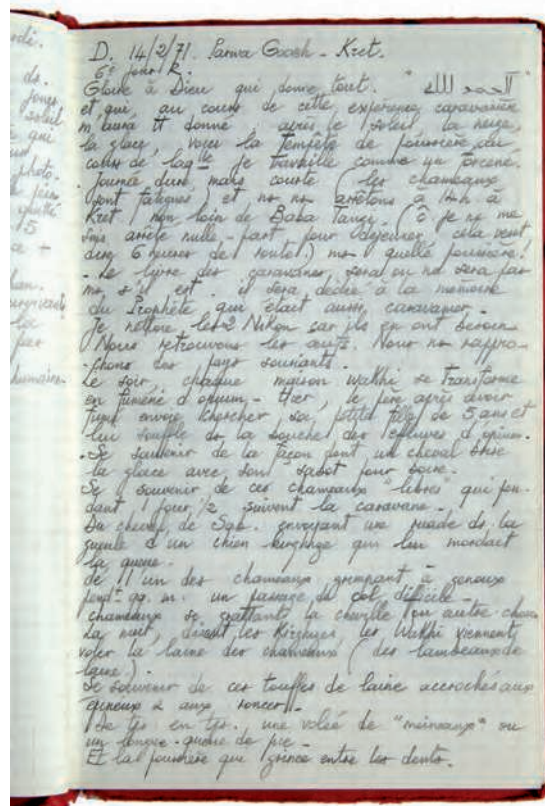 di.
ds.
jours
soleil
qui
photo.
15
a +
lan.
la
par
humain-
D. 14/2/71. Sarwa Goosh - Kret.
6e jour R.
Gloire à Dieu qui donne tout. " الحمد لله "
et qui, au cours de cette expérience caravanière
m'aura tt donné : après le soleil, la neige,
la glace, voici la tempête de poussière au
cours de laqlle je travaille comme un forcené.
Journée dure, mais courte (les chameaux
sont fatigués et ns ns arrêtons à 14h à
Kret non loin de Baba Tangi. (c je ne me
suis arrêté nulle-part pour déjeuner, cela veut
dire 6 heures de route!) ms quelle poussière!
- Le livre des caravanes, sera ou ne sera pas
ms s'il est, il sera dédié à la mémoire
du Prophète qui était aussi caravanier.
Je nettoie les 2 Nikon car ils en ont besoin
Nous retrouvons les œufs. Nous ns rappro-
chons des pays souriants.
Le soir, chaque maison wakhi se transforme
en fumerie d'opium - Hier, le père après avoir
fumé envoie chercher sa petite fille de 5 ans et
lui souffle ds la bouche des effluves d'opium.
- Se souvenir de la façon dont un cheval brise
la glace avec son sabot pour boire.
Se souvenir de ces chameaux "libres" qui pen-
dant 1 jour 1/2 suivent la caravane.
Du cheval de Sab. envoyant une ruade ds la
gueule d'un chien kirghize qui lui mordait
la queue.
de l'un des chameaux grimpant à genoux
pendt qq. m. un passage du col difficile
chameaux se grattant la cheville
La nuit, disent les Kirghizes, les Wakhi viennent
voler la laine des chameaux (des lambeaux de
laine).
Se souvenir de ces touffes de laine accrochés aux
épineux & aux ronces.
De tps en tps. une volée de "moineaux" ou
un longue-queue de pie -
Et la poussière que grince entre les dents.